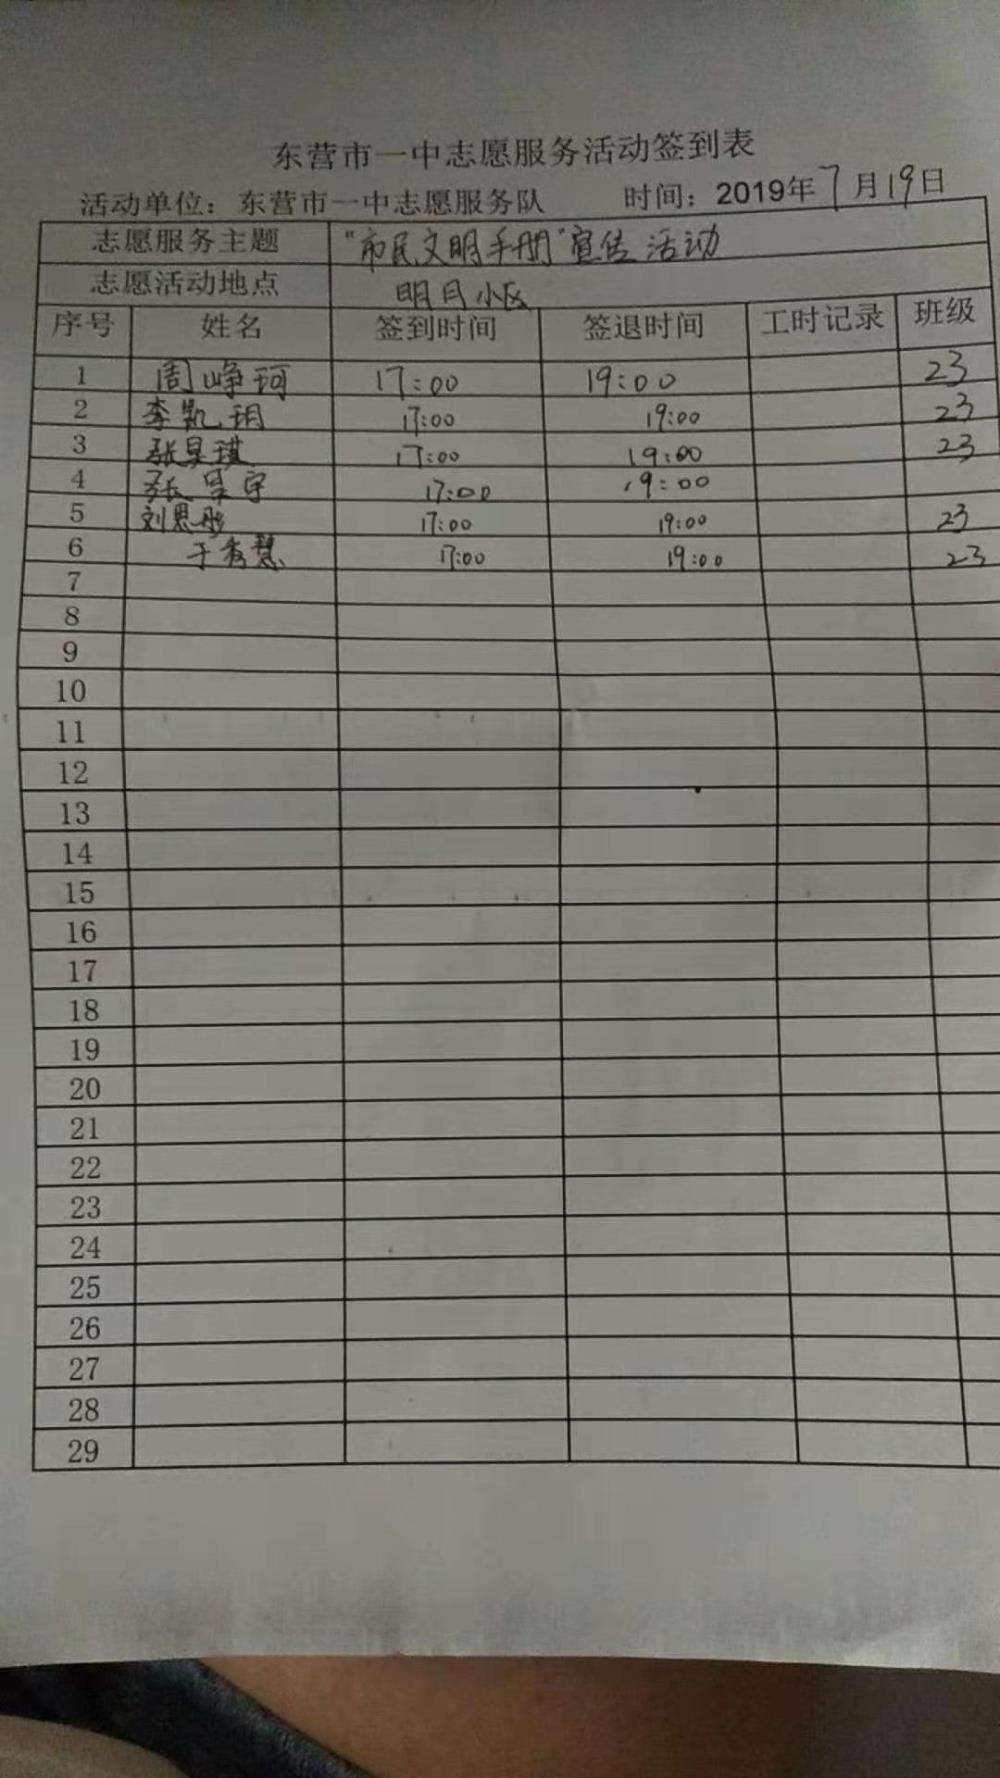 东营市一中志愿服务活动签到表
活动单位：东营市一中志愿服务队 时间：2019年7月19日
志愿服务主题 “市民文明手册”宣传活动
志愿活动地点 明月小区
序号 姓名 签到时间 签退时间 工时记录 班级
1 周峥珂 17:00 19:00 23
2 李凯玥 17:00 19:00 23
3 张昊琪 17:00 19:00 23
4 张昊宇 17:00 19:00
5 刘思彤 17:00 19:00 23
6 于秀慧 17:00 19:00 23
7
8
9
10
11
12
13
14
15
16
17
18
19
20
21
22
23
24
25
26
27
28
29